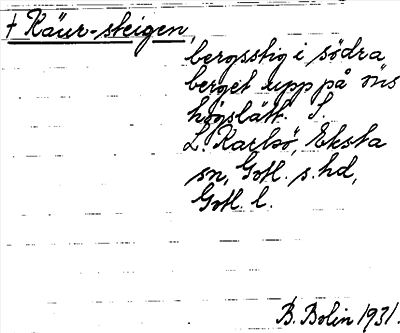 † Käur-steigen,
bergsstig i södra
berget upp på öns
högslätt. S.
L. Karlsö, Eksta
sn, Gotl. s. hd,
Gotl. l.
B. Bolin 1931.